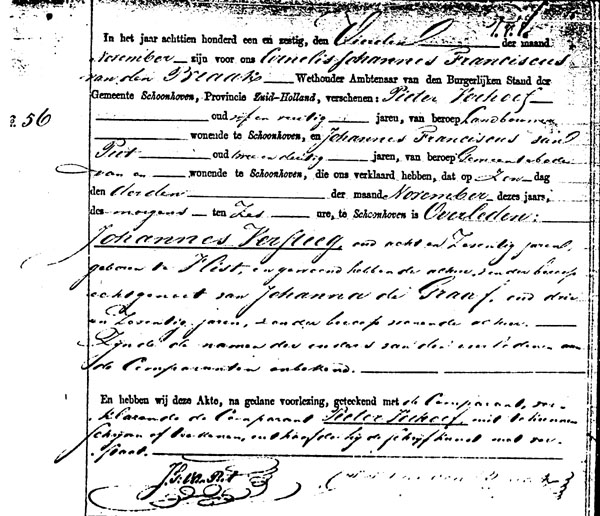 In het jaar achttien honderd een en zestig, den Vierden der maand
November zijn voor ons Cornelis Johannes Franciscus
van den Braak Wethouder Ambtenaar van den Burgerlijken Stand der
Gemeente Schoonhoven, Provincie Zuid-Holland, verschenen: Pieter Verhoef
oud vijf en veertig jaren, van beroep Landbouwer
56
wonende te Schoonhoven, en Johannes Franciscus van
Piet oud twee en dertig jaren, van beroep Gemeentebode
van en wonende te Schoonhoven, die ons verklaard hebben, dat op Zondag
den Derden der maand November dezes jaars,
des morgens ten Zes ure, te Schoonhoven is Overleden:
Johannes Versteeg, oud acht en Zestig jaren,
geboren te en gewoond hebbende alhier, zonder beroep
echtgenoot van Johanna de Graaf, oud drie
en Zestig jaren, zonder beroep wonende alhier.
Zijnde de namen der ouders van den overledenen aan
de Comparanten onbekend.
En hebben wij deze Akte, na gedane voorlezing, geteekend met de Comparant, ver-
klarende de Comparant Pieter Verhoef, niet te kunnen
schrijven of teekenen, uit hoofde hij de schrijfkunst niet ver-
staat.